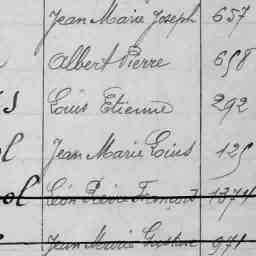 Jean Marie Joseph 657
Albert Pierre 658
Louis Etienne 292
Jean Marie Louis 125
ol Léon Pierre François 1374
Jean Marie Gustave 971